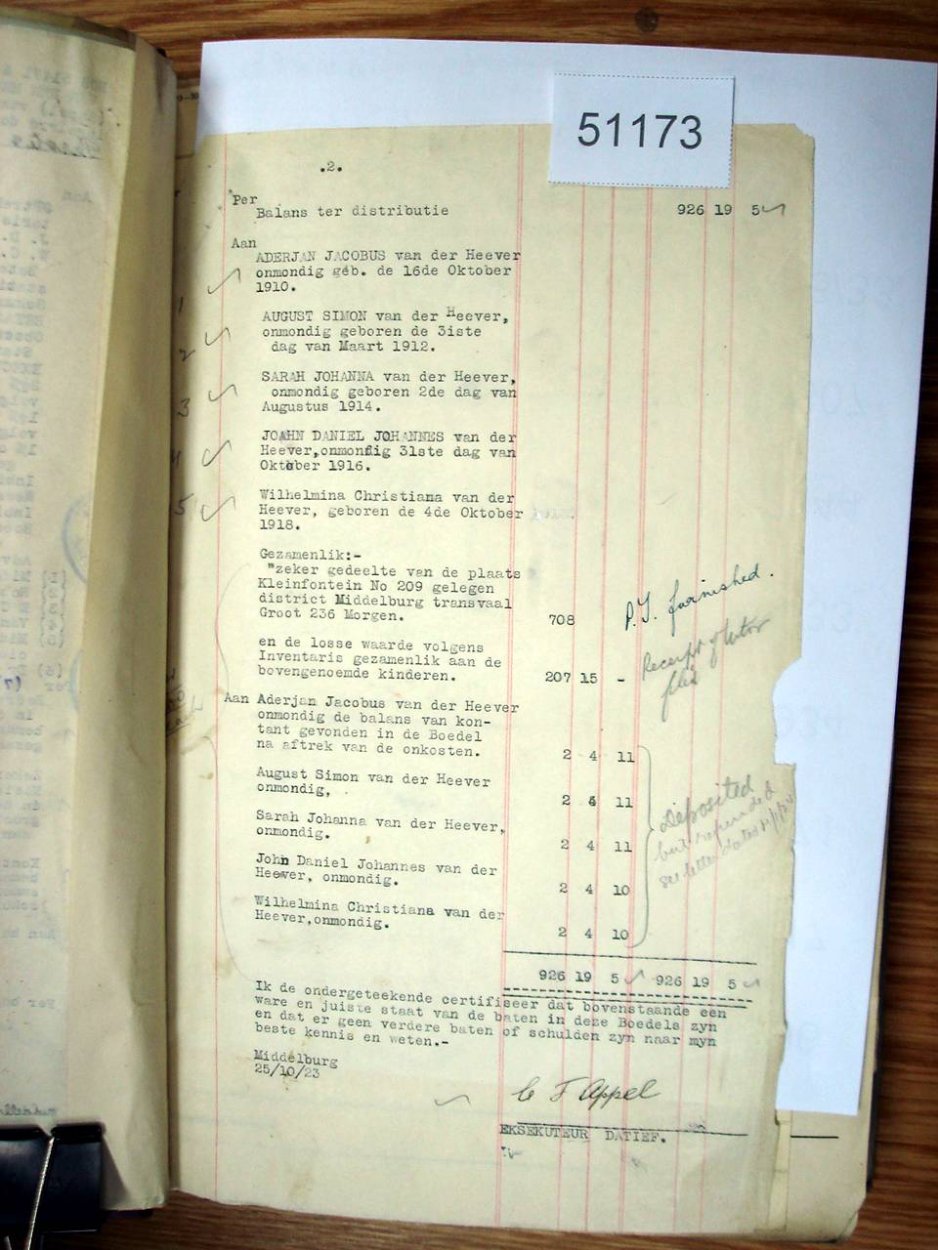 51173
.2.
Per
Balans ter distributie 926 19 5
Aan
ADERJAN JACOBUS van der Heever
onmondig geb. de 16de Oktober
1910.
1
AUGUST SIMON van der Heever,
onmondig geboren de 3iste
dag van Maart 1912.
2
SARAH JOHANNA van der Heever,
onmondig geboren 2de dag van
Augustus 1914.
3
JOAHN DANIEL JOHANNES van der
Heever,onmondig 31ste dag van
Oktober 1916.
4
Wilhelmina Christiana van der
Heever, geboren de 4de Oktober
1918.
5
Gezamenlik:-
"zeker gedeelte van de plaats
Kleinfontein No 209 gelegen
district Middelburg transvaal
Groot 236 Morgen. 708
P.T. furnished.
en de losse waarde volgens
Inventaris gezamenlik aan de
bovengenoemde kinderen. 207 15 -
Receipt of tutor
filed
Aan Aderjan Jacobus van der Heever
onmondig de balans van kon-
tant gevonden in de Boedel
na aftrek van de onkosten. 2 4 11
August Simon van der Heever
onmondig, . 2 4 11
Sarah Johanna van der Heever,
onmondig. 2 4 11
John Daniel Johannes van der
Heever, onmondig. 2 4 10
Wilhelmina Christiana van der
Heever,onmondig. 2 4 10
Deposited
but refunded
see letter dated
926 19 5 926 19 5
Ik de ondergeteekende certifiseer dat bovenstaande een
ware en juiste staat van de baten in deze Boedels zyn
en dat er geen verdere baten of schulden zyn naar myn
beste kennis en weten.-
Middelburg
25/10/23
C F Appel
EKSEKUTEUR DATIEF.